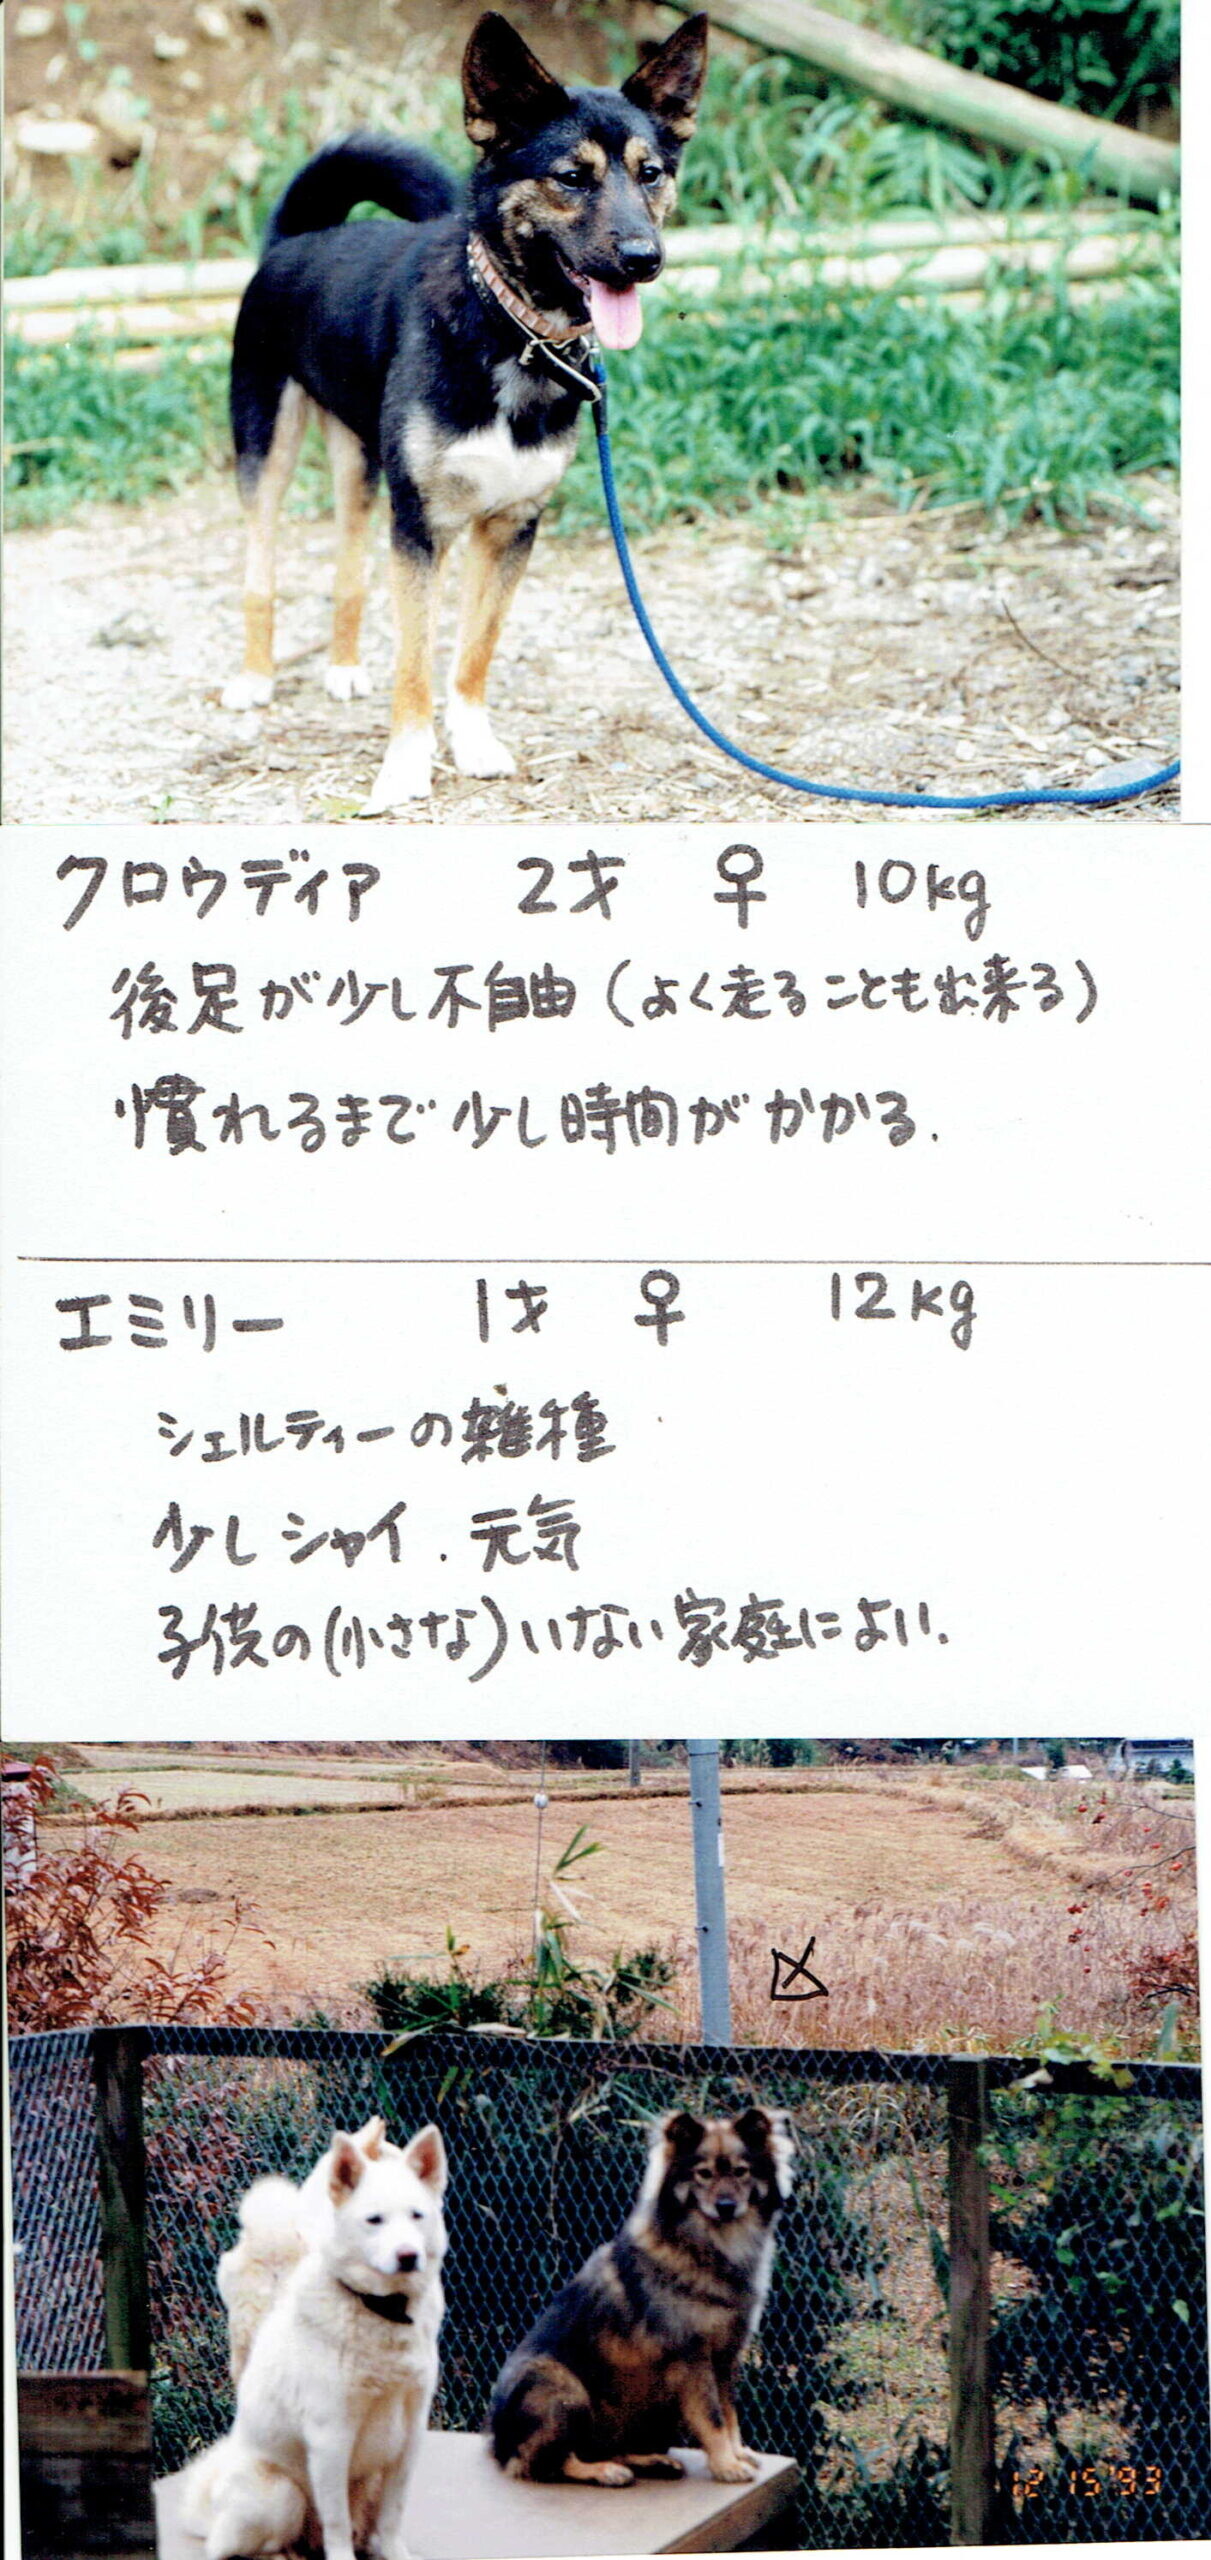 クロウディア 2才 ♀ 10kg
後足が少し不自由(よく走ることも出来る)
慣れるまで少し時間がかかる.
エミリー 1才 ♀ 12kg
シェルティーの雑種
少しシャイ.元気
子供の(小さな)いない家庭によい.
12 15 '93